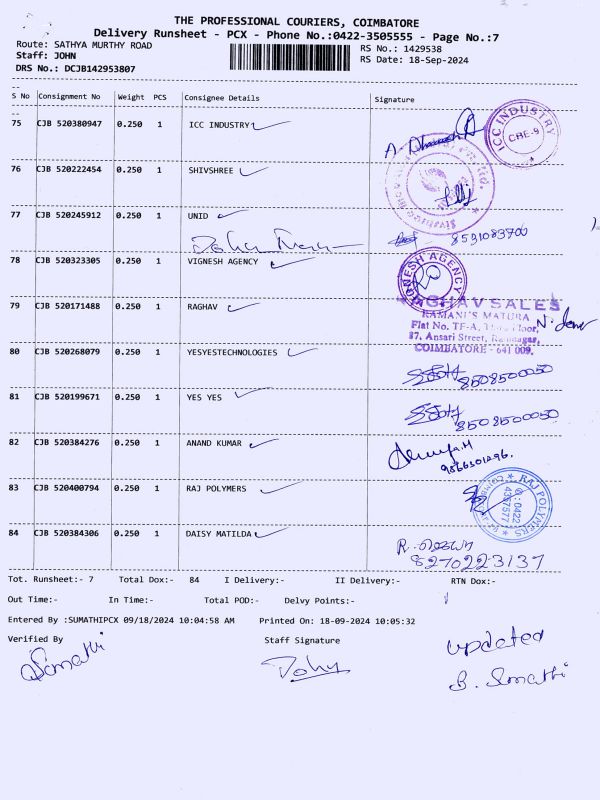 THE PROFESSIONAL COURIERS, COIMBATORE
Delivery Runsheet - PCX - Phone No.:0422-3505555 - Page No.:7
Route: SATHYA MURTHY ROAD RS No.: 1429538
Staff: JOHN RS Date: 18-Sep-2024
DRS No.: DCJB142953807
S No Consignment No Weight PCS Consignee Details Signature
75 CJB 520380947 0.250 1 ICC INDUSTRY
ICC INDUSTRY CBE-9
76 CJB 520222454 0.250 1 SHIVSHREE
77 CJB 520245912 0.250 1 UNID
8591083700
78 CJB 520323305 0.250 1 VIGNESH AGENCY
AGENCY
79 CJB 520171488 0.250 1 RAGHAV
RAGHAV SALES
RAMANI'S MAYURA
Flat No. TF-A, Third Floor,
87, Ansari Street, Ramnagar,
COIMBATORE - 641 009.
80 CJB 520268079 0.250 1 YESYESTECHNOLOGIES
8508500050
81 CJB 520199671 0.250 1 YES YES
8508500050
82 CJB 520384276 0.250 1 ANAND KUMAR
83 CJB 520400794 0.250 1 RAJ POLYMERS
RAJ POLYMERS
84 CJB 520384306 0.250 1 DAISY MATILDA
8270223137
Tot. Runsheet:- 7 Total Dox:- 84 I Delivery:- II Delivery:- RTN Dox:-
Out Time:- In Time:- Total POD:- Delvy Points:-
Entered By :SUMATHIPCX 09/18/2024 10:04:58 AM Printed On: 18-09-2024 10:05:32
Verified By Staff Signature
updated